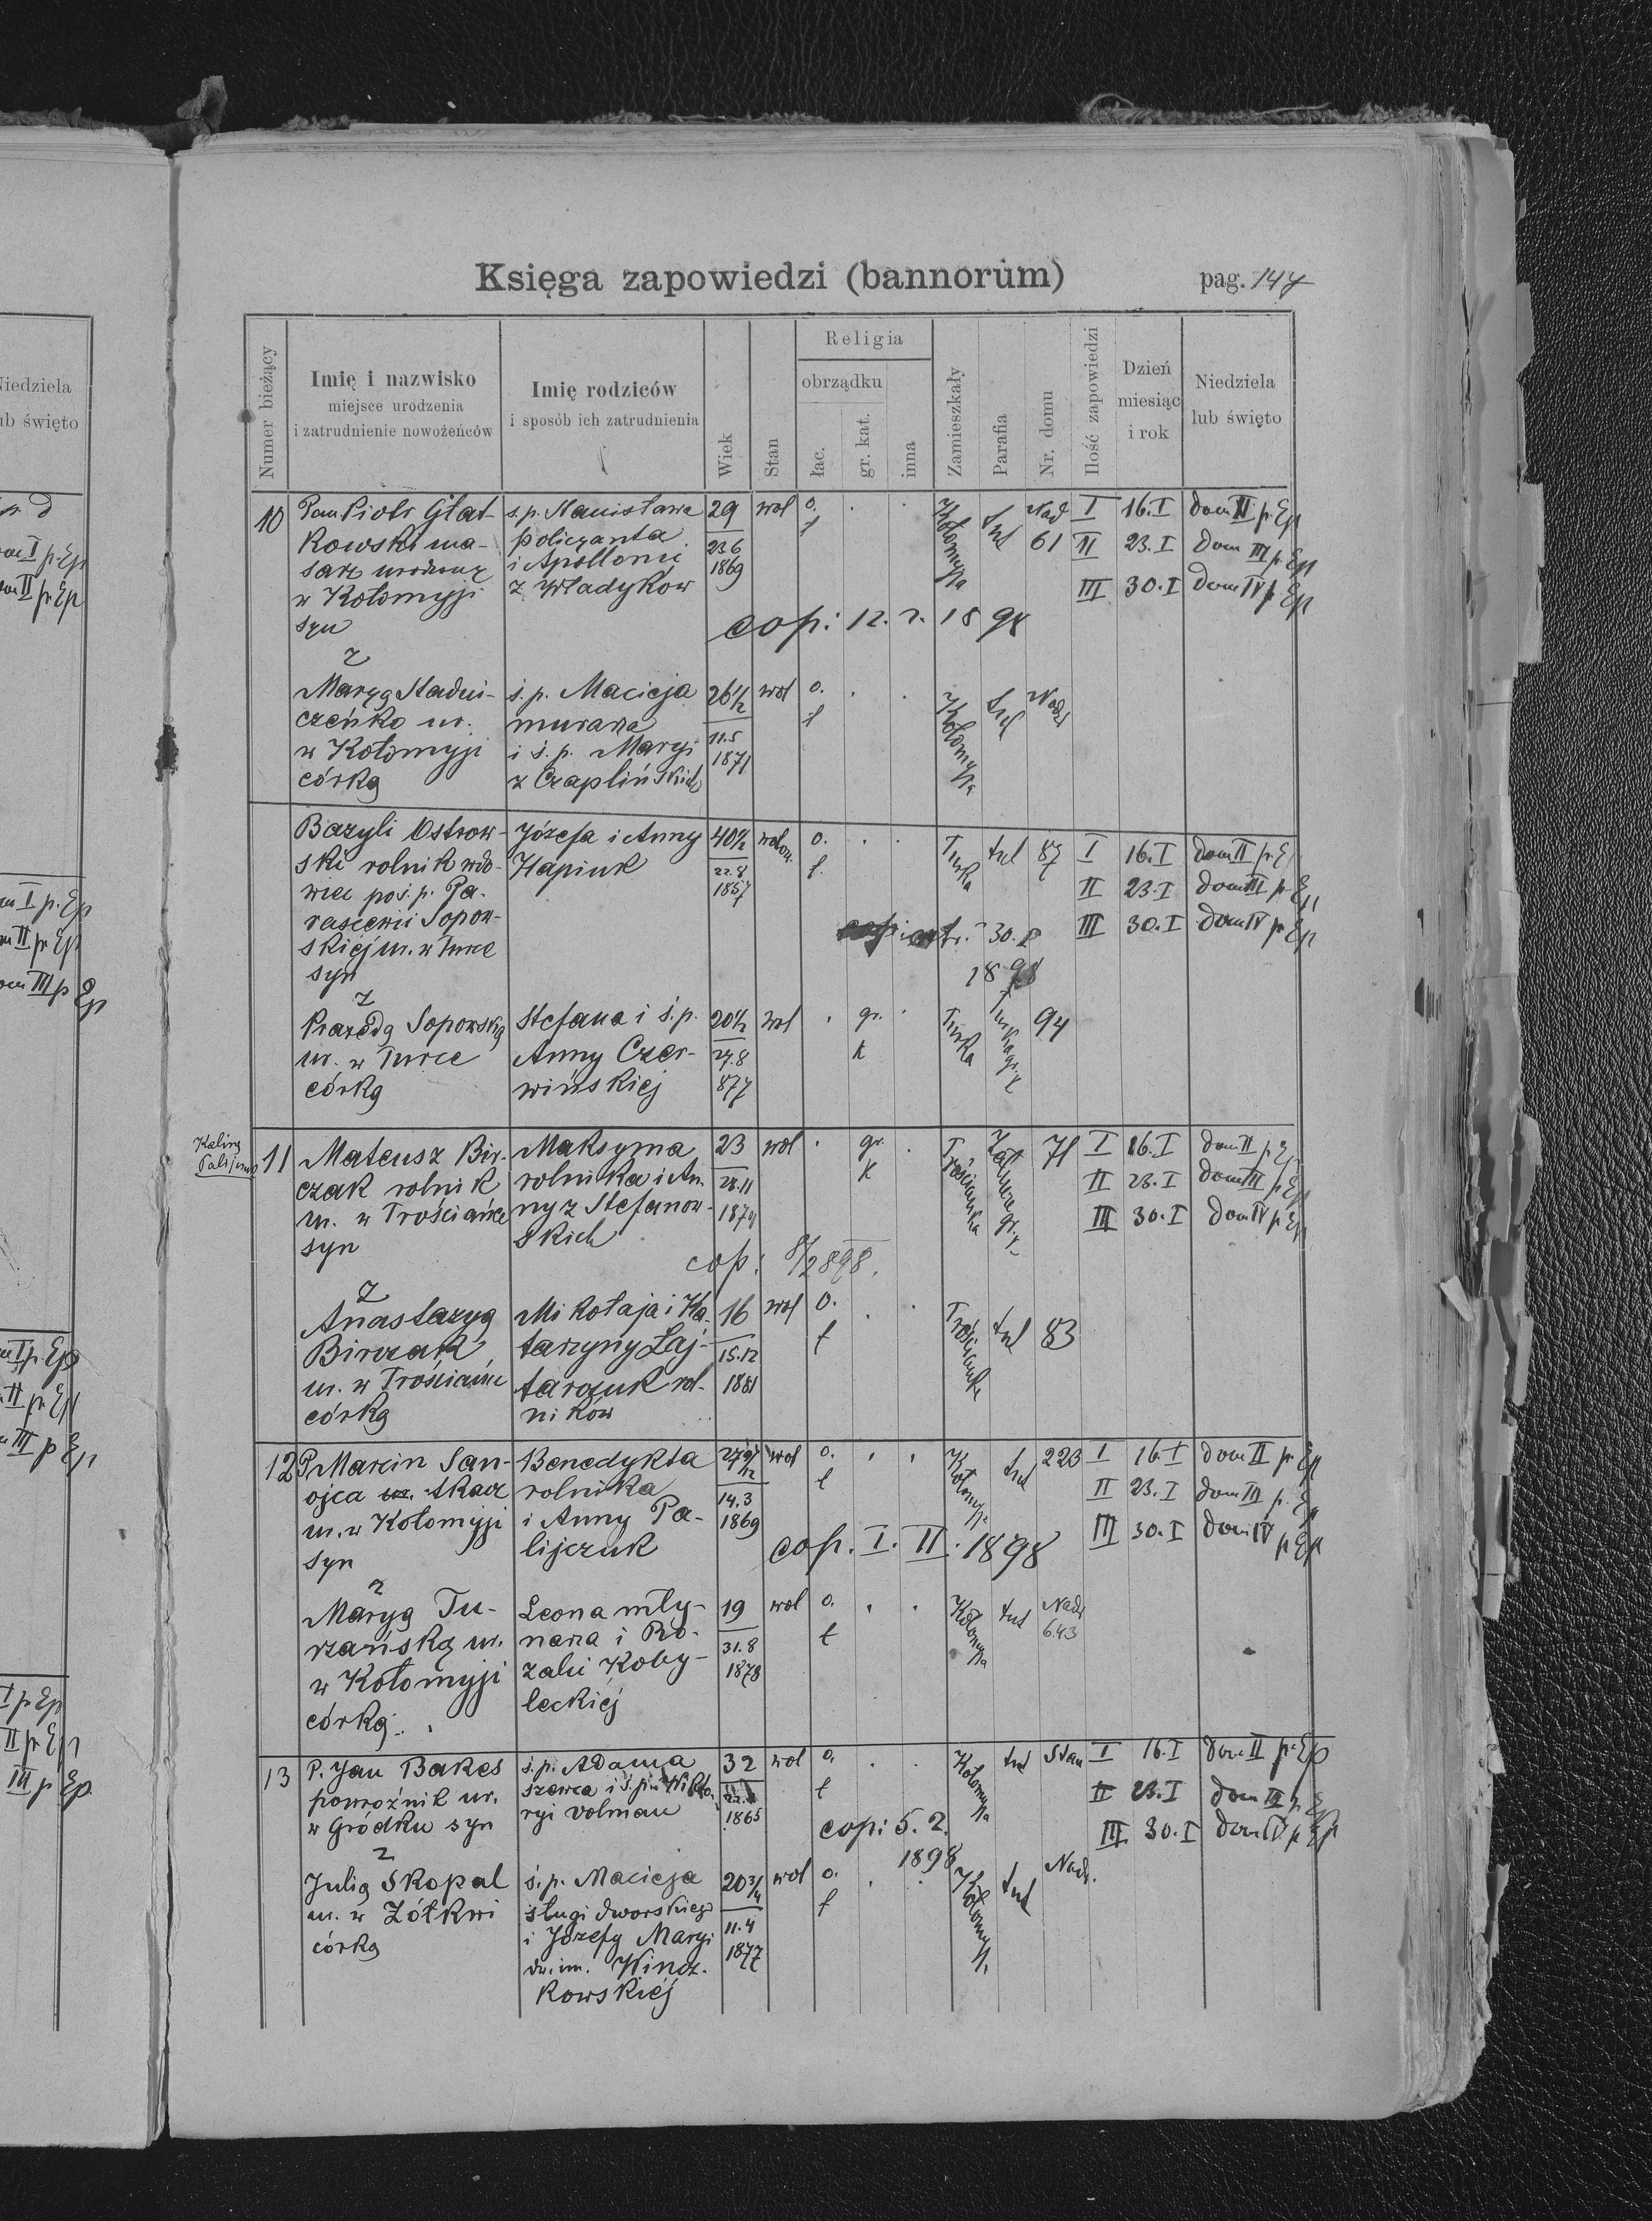 Księga zapowiedzi (bannorum)
pag. 147
Numer bieżący
Imię i nazwisko
miejsce urodzenia
i zatrudnienie nowożeńców
Imię rodziców
i sposób ich zatrudnienia
Wiek
Stan
Religia
obrządku
łac.
gr. kat.
inna
Zamieszkały
Parafia
Nr. domu
Ilość zapowiedzi
Dzień
miesiąc
i rok
Niedziela
lub święto
Niedziela
lub święto
10
Pan Piotr Głat-
kowski ma-
sarz urodzony
w Kołomyji
syn
z
ś.p. Stanisława
policyanta
i Apollonii
z Władyków
29
23.6
1869
wol
o.
ł
Kołomyja
tut
Nad
61
I 16.I dom II p. Ep
II 23.I dom III p. Ep
III 30.I dom IV p Ep
cop: 12. 2. 1898
Maryą Stadni-
czeńko ur.
w Kołomyji
córką
ś.p. Macieja
murarza
i ś.p. Maryi
z Czaplińskich
26 1/2
11.5
1871
wol
o.
ł
Kołomyja
tut
Nadw
Bazyli Ostrow-
ski rolnik wdo-
wiec po ś.p. Pa-
rascewii Sopow-
skiej ur. w Turce
syn
z
Józefa i Anny
Hapiuk
40 1/2
22.8
1857
wdow.
o.
ł.
Turka
tut
87
I 16.I dom II p. E
II 23.I dom III p. Ep
III 30.I dom IV p Ep
30.I
1898
Praxedą Sopowską
ur. w Turce
córką
Stefana i ś.p.
Anny Czer-
wińskiej
20 1/2
27.8
877
wol
gr.
k
Turka
Turka gr. k
94
Kaling
Palijczuk
11
Mateusz Bir-
czak rolnik
ur. w Trościańce
syn
z
Maksyma
rolnika i An-
ny z Stefanow-
skich
23
28.11
1874
wol
gr.
k
Trościanka
71
I 16.I dom II p. E
II 23.I dom III p Ep
III 30.I dom IV p Ep
cop: 8/2 898.
Anastazyą
Birczak
ur. w Trościańce
córką
Mikołaja i Ka-
tarzyny Łaj-
tarczuk rol-
ników
16
15.12
1881
wol
o.
ł
Trościanka
tut
83
12
P. Marcin San-
ojca tkacz
ur. w Kołomyji
syn
z
Benedykta
rolnika
i Anny Pa-
lijczuk
14.3
1869
wol
o.
ł
Kołomyja
tut
223
I 16.I dom II p. Ep
II 23.I dom III p. Ep
III 30.I dom IV p Ep
cop. I. II. 1898
Maryą Tu-
rzańską ur.
w Kołomyji
córką
Leona mły-
narza i Ro-
zalii Koby-
leckiej
19
31.8
1878
wol
o.
ł
Kołomyja
tut
Nadw
643
13
P. Jan Bakes
powroźnik ur.
w Gródku syn
z
ś.p. Adama
szewca i ś.p. Wikto-
ryi Volman
32
1865
wol
o.
ł
Kołomyja
tut
Stan
I 16.I dom II p. Ep
II 23.I dom III p Ep
III. 30.I dom IV p Ep
cop: 5. 2.
1898
Julią Skopal
ur. w Żółkwi
córką
ś.p. Macieja
sługi dworskiego
i Józefy Maryi
dw. im. Wincz-
kowskiej
20 3/4
11.4
1877
wol
o.
ł
Kołomyja
tut
Nadw.